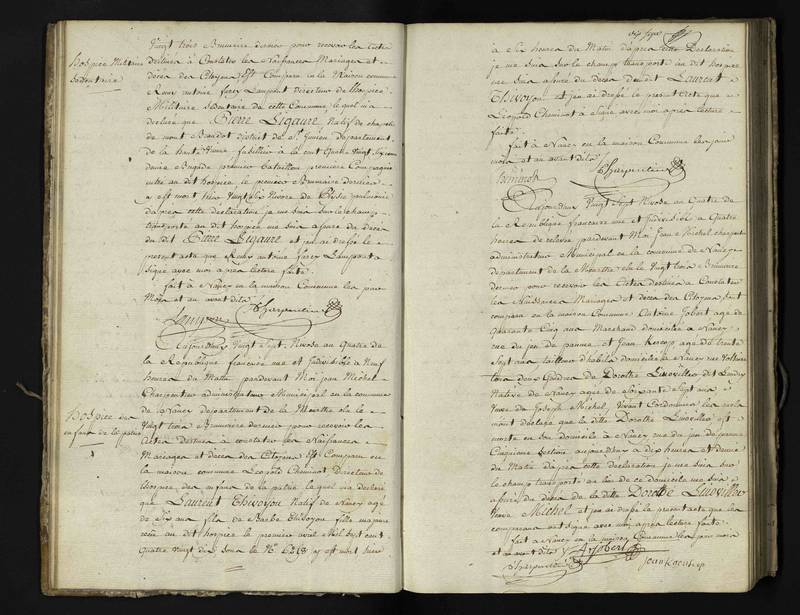 Vingt trois Brumaire dernier pour recevoir les actes
Hospice Militaire
destinés à Constater les Naissances Mariages et
décès des Citoyens Est Comparu en la Maison commune
Remy antoine Directeur de l'hospice
Militaire sedentaire de cette Commune lequel m'a
déclaré que Pierre Ligaure Natif de
district de St. Junien département
de la haute Vienne fusillier à la cent quatre vingt
demie Brigade premier bataillon premiere Compagnie
entré au dit hospice le premier Brumaire dernier
y est mort hier Vingt six Nivose de
d'après cette déclaration je me suis sur le champ
transporté au dit hospice me suis assuré du décès
du dit Pierre Ligaure et j'en ai dressé le
present acte que Remy antoine a
signé avec moi après lecture faite
fait à Nancy en la maison Commune les jour
Mois et an avant dits
Charpentier
Aujourd'hui Vingt Sept Nivose an Quatre de
la Republique française une et Indivisible à Neuf
heures du Matin pardevant Moi jean Michel
Charpentier administrateur Municipal en la commune
de Nancy département de la Meurthe élu le
Vingt trois Brumaire dernier pour recevoir les
Hospice des
enfans de la patrie
Actes destinés à constater les Naissances
Mariages et décès des Citoyens Est Comparu en
la maison commune Leopold Cheminot Directeur de
l'hospice des enfans de la patrie lequel m'a declaré
que Laurent Thivoyon Natif de Nancy agé
de Six ans fils de Barbe Thivoyon fille majeure
reçu au dit hospice le premier avril Mil sept cent
Quatre vingt dix sous le No. y est mort hier
à Six heures du Matin d'après cette Declaration
je me suis sur le champ transporté au dit hospice
me suis assuré du décès dudit Laurent
Thivoyon et j'en ai dressé le present acte que
Leopold Cheminot a signé avec moi après lecture
faite
fait à Nancy en la maison Commune les jour
mois et an avant dits
Cheminot Charpentier
Aujourd'hui Vingt Sept Nivose an Quatre de
la Republique française une et Indivisible à Quatre
heures de relevée pardevant Moi Jean Michel charpentier
administrateur Municipal en la commune de Nancy
département de la Meurthe élu le Vingt trois Brumaire
dernier pour recevoir les Actes destinés à Constater
les Naissances Mariages et décès des Citoyens Sont
comparu en la maison Commune Antoine Jobert agé de
Quarante Cinq ans Marchand domicilié à Nancy
rue du et Jean agé de trente
Sept ans tailleur d'habits domicilié à Nancy rue Voltaire
tous deux Gendres de Dorothé Linvillier dit
Native de Nancy agée de Soixante Sept ans
Veuve de Joseph Michel, Vivant Cordonnier les quels
m'ont déclaré que la dite Dorothé Linvillier est
morte en son domicile à Nancy rue du
Cinquieme Section aujourd'hui à dix heures et demie
du Matin d'après cette déclaration je me suis sur
le champ transporté au lieu de ce domicile me suis
assuré du décès de la dite Dorothé Linvillier
Veuve Michel et j'en ai dressé le present acte que les
comparans ont signé avec moi après lecture faite
fait à Nancy en la maison Commune les jour mois
et an avant dits A Jobert
Charpentier